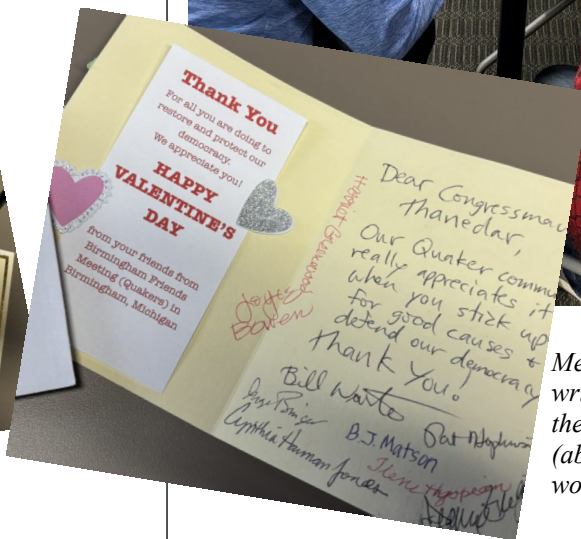 Thank You
For all you are doing to
restore and protect our
democracy.
We appreciate you!
HAPPY
VALENTINE'S
DAY
from your friends from
Birmingham Friends
Meeting (Quakers) in
Birmingham, Michigan
Joyce
Bowen
Dear Congressman
Thanedar,
Our Quaker commu
really appreciates it
when you stick up
for good causes +
defend our democracy
Thank You.
Bill
B.J. Matson
Pat
Cynthia Human Jones
Ilene
Me
wri
the
(ab
wo